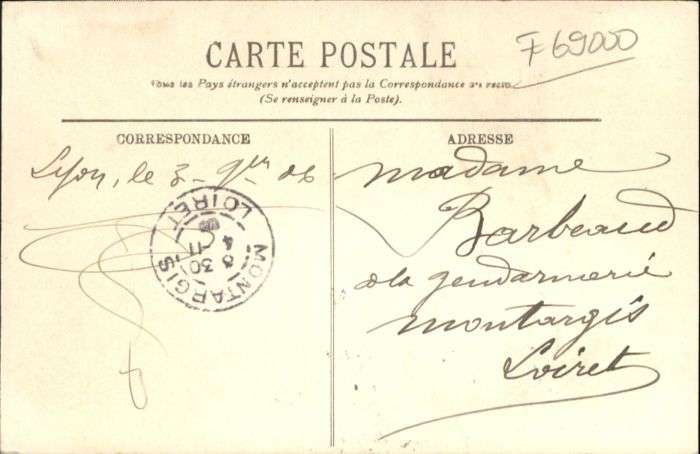 F 69000
CARTE POSTALE
Tous les Pays étrangers n'acceptent pas la Correspondance au recto
(Se renseigner à la Poste).
CORRESPONDANCE
Lyon, le 3 - 9bre 06
MONTARGIS
LOIRET
ADRESSE
Madame
Barbeaud
à la gendarmerie
Montargis
Loiret